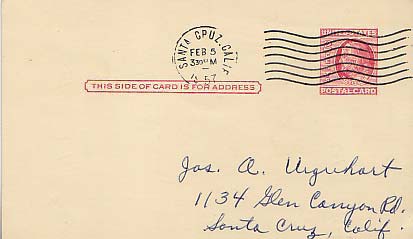 SANTA CRUZ, CALIF.
FEB 5
3 30 PM
1957
UNITED STATES
POSTAL CARD
THIS SIDE OF CARD IS FOR ADDRESS
Jas. A. Urquhart
1134 Glen Canyon Rd.
Santa Cruz, Calif.